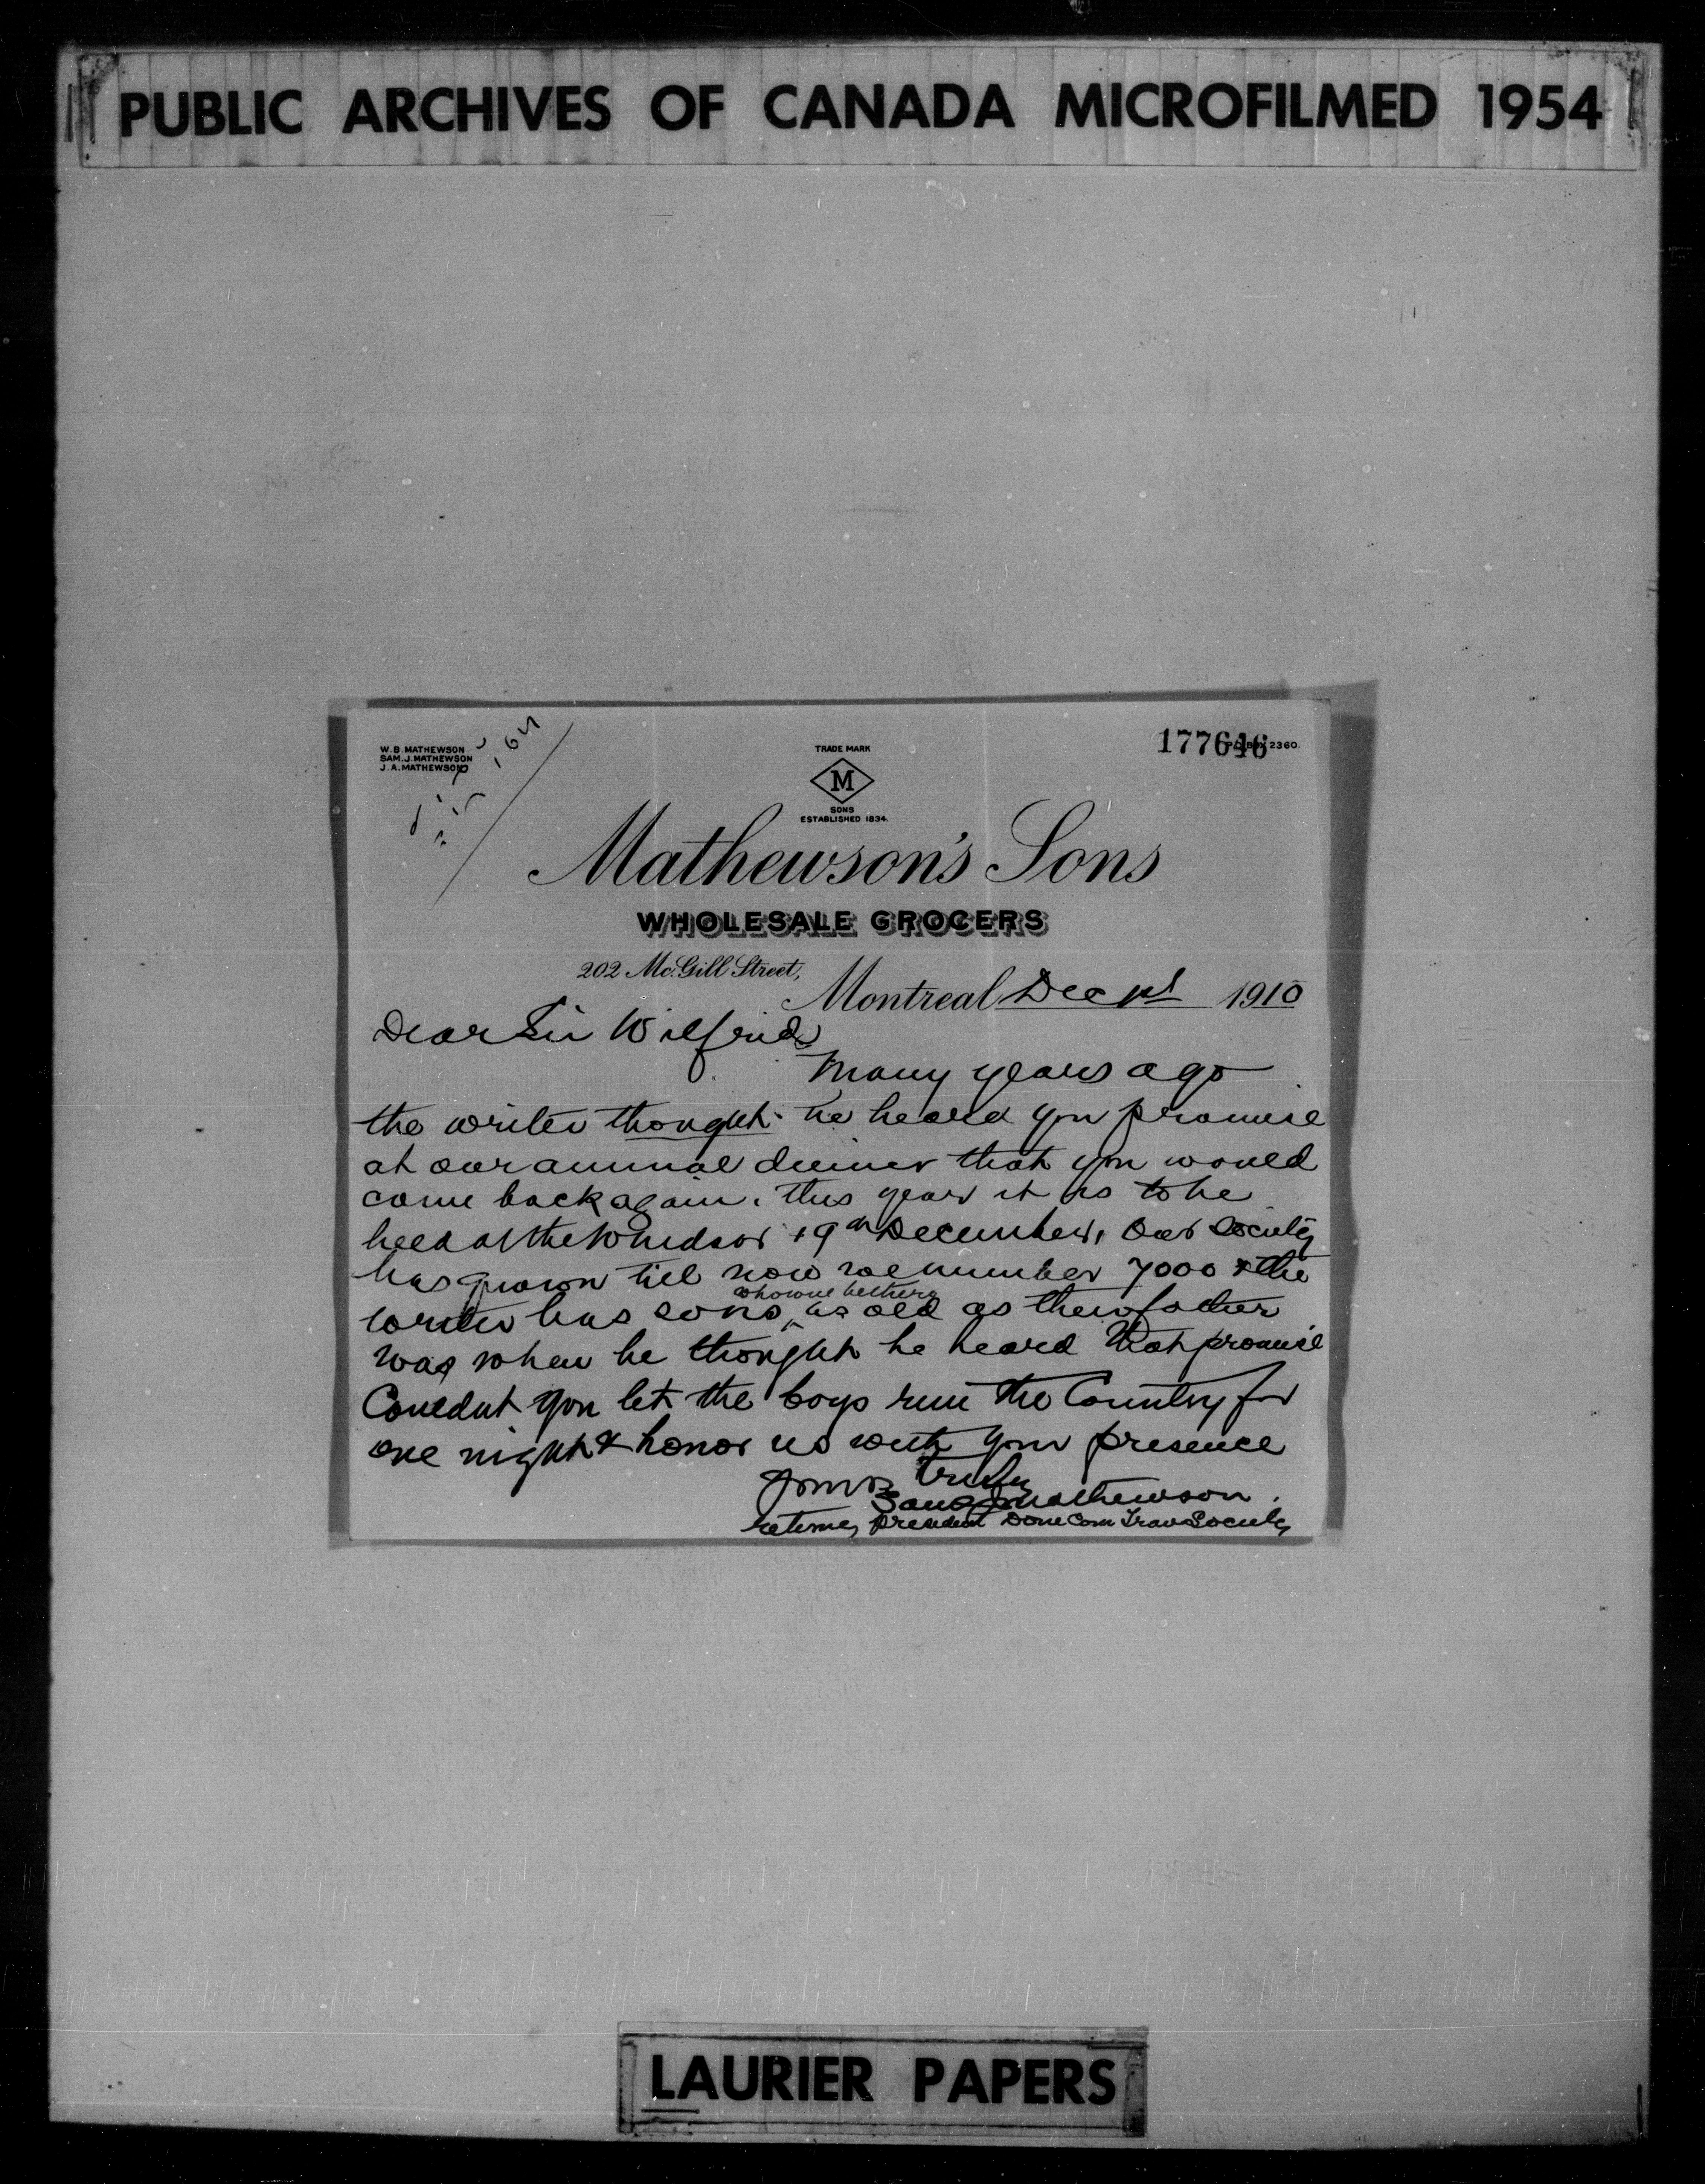 PUBLIC ARCHIVES OF CANADA MICROFILMED 1954
177646
2360.
W. B. MATHEWSON
SAM. J. MATHEWSON
J. A. MATHEWSON
TRADE MARK
M
SONS
ESTABLISHED 1834.
Mathewson's Sons
WHOLESALE GROCERS
202 McGill Street,
Montreal Dec 1st 1910
Dear Sir Wilfrid
Many years ago
the writer thought he heard you promise
at our annual dinner that you would
come back again. This year it is to be
held at the Windsor 19th December, Our Society
has grown till now we number 7000 & the
writer has sons, as old as their father
was when he thought he heard that promise
Couldnt you let the boys run the Country for
one night & honor us with your presence
Yours truly
Sam J Mathewson.
retiring President Dom Com Trav Society
LAURIER PAPERS